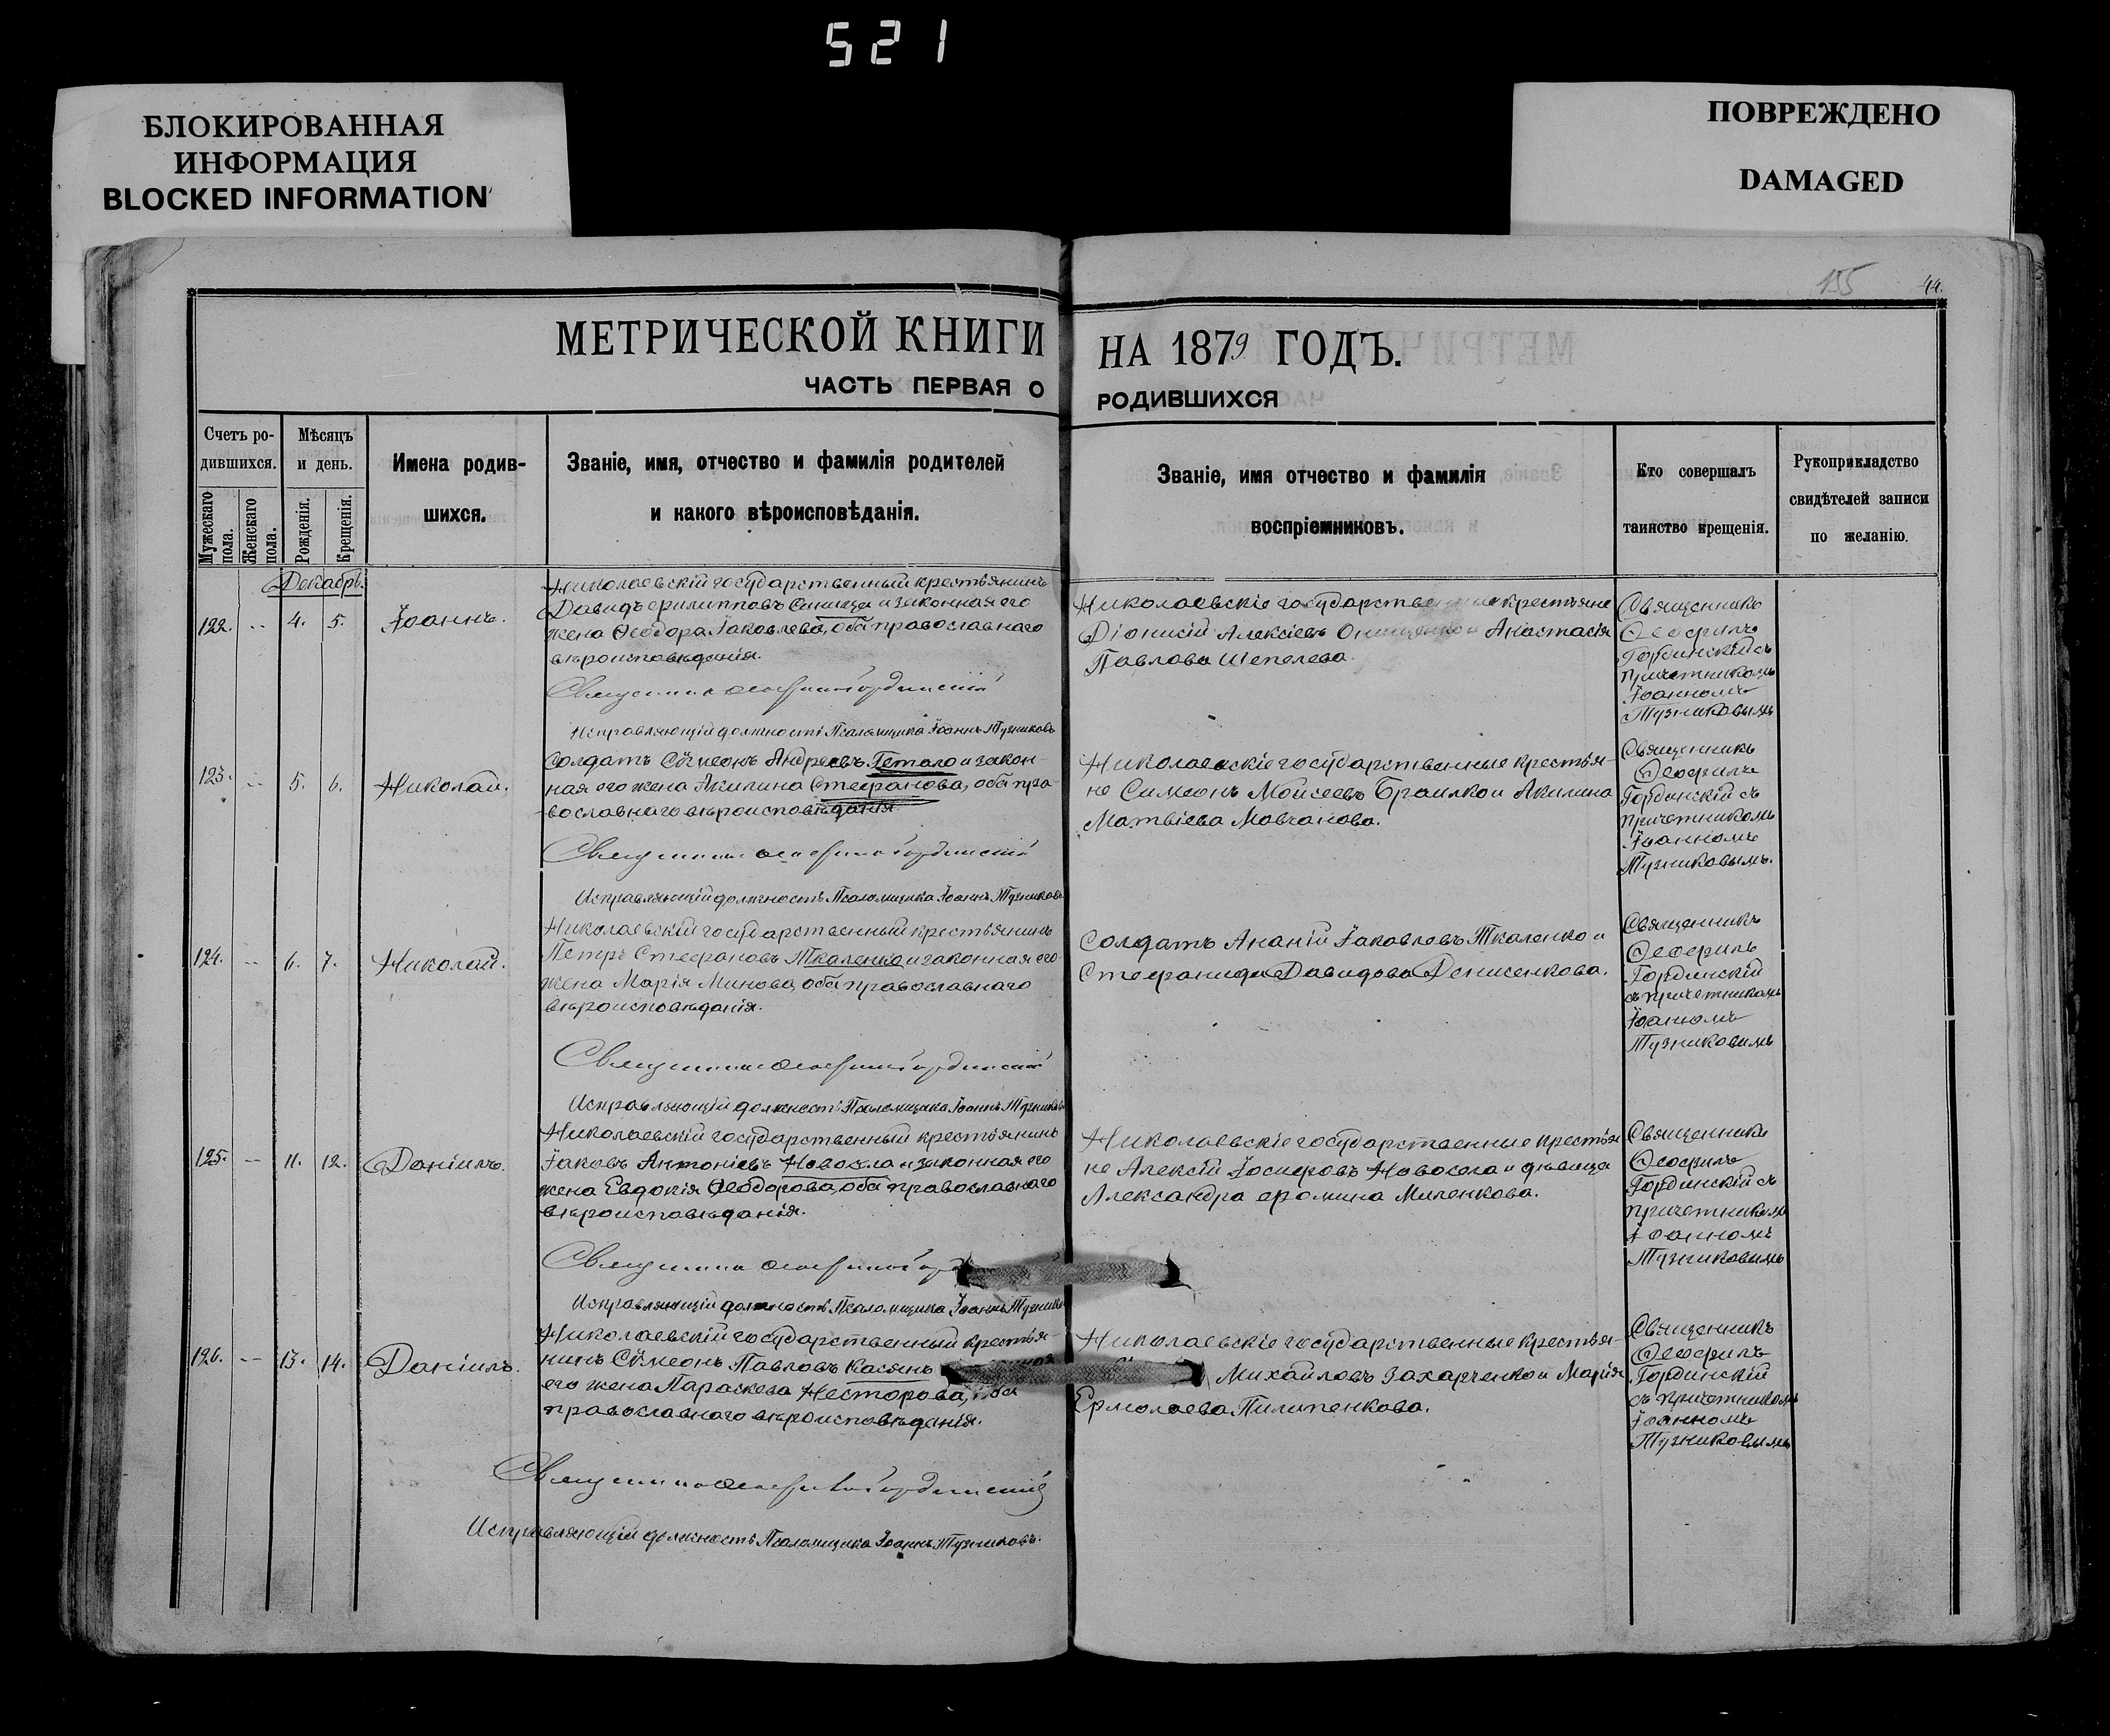 521
БЛОКИРОВАННАЯ
ИНФОРМАЦИЯ
BLOCKED INFORMATION
ПОВРЕЖДЕНО
DAMAGED
155
44.
МЕТРИЧЕСКОЙ КНИГИ НА 1879 ГОДЪ.
ЧАСТЬ ПЕРВАЯ О РОДИВШИХСЯ
Счетъ ро-
дившихся.
Мужескаго пола.
Женскаго пола.
Мѣсяцъ
и день.
Рожденія.
Крещенія.
Имена родив-
шихся.
Званіе, имя, отчество и фамилія родителей
и какого вѣроисповѣданія.
Званіе, имя отчество и фамилія
воспріемниковъ.
Кто совершалъ
таинство крещенія.
Рукоприкладство
свидѣтелей записи
по желанію.
Декабрь.
122. -- 4. 5. Іоаннъ.
Николаевскій государственный крестьянинъ
Давидъ Филипповъ Синица и законная его
жена Ѳеодора Іаковлева, оба православнаго
вѣроисповѣданія.
Священникъ Ѳеофилъ Гординскій
Исправляющій должность Псаломщика Іоаннъ Тузниковъ
Николаевскіе государственные крестьяне
Діонисій Алексіевъ Онищенко и Анастасія
Павлова Шепелева.
Священникъ
Ѳеофилъ
Гординскій съ
причетникомъ
Іоанномъ
Тузниковымъ
123. -- 5. 6. Николай.
Солдатъ Сѵмеонъ Андреевъ Гетало и закон-
ная его жена Акилина Стефанова, оба пра-
вославнаго вѣроисповѣданія
Священникъ Ѳеофилъ Гординскій
Исправляющій должность Псаломщика Іоаннъ Тузниковъ
Николаевскіе государственные крестья-
не Симеонъ Мойсеевъ Браилко и Акилина
Матвіева Мовчанова.
Священникъ
Ѳеофилъ
Гординскій съ
причетникомъ
Іоанномъ
Тузниковымъ.
124. -- 6. 7. Николай.
Николаевскій государственный крестьянинъ
Петръ Стефановъ Ткаленко и законная его
жена Марія Минова, оба православнаго
вѣроисповѣданія.
Священникъ Ѳеофилъ Гординскій
Исправляющій должность Псаломщика Іоаннъ Тузниковъ
Солдатъ Ананій Іаковлевъ Ткаленко и
Стефанида Давидова Денисенкова.
Священникъ
Ѳеофилъ
Гординскій
съ причетникомъ
Іоанномъ
Тузниковымъ
125. -- 11. 12. Даніилъ.
Николаевскій государственный крестьянинъ
Іаковъ Антоніевъ Новохла и законная его
жена Евдокія Ѳеодорова, оба православнаго
вѣроисповѣданія.
Священникъ Ѳеофилъ
Исправляющій должность Псаломщика Іоаннъ
Николаевскіе государственные крестья
не Алексій Іосифовъ Новосела и дѣвица
Александра Фомина Миленкова.
Священникъ
Ѳеофилъ
Гординскій съ
причетникомъ
Іоанномъ
Тузниковымъ
126. -- 13. 14. Даніилъ.
Николаевскій государственный крестья-
нинъ Сѵмеонъ Павловъ Касянъ
его жена Параскева Несторова, оба
православнаго вѣроисповѣданія.
Священникъ Ѳеофилъ Гординскій
Исправляющій должность Псаломщика Іоаннъ Тузниковъ.
Николаевскіе государственные крестья-
Михайловъ Захарченко и Марія
Ермолаева Пилипенкова.
Священникъ
Ѳеофилъ
Гординскій
съ причетникомъ
Іоанномъ
Тузниковымъ